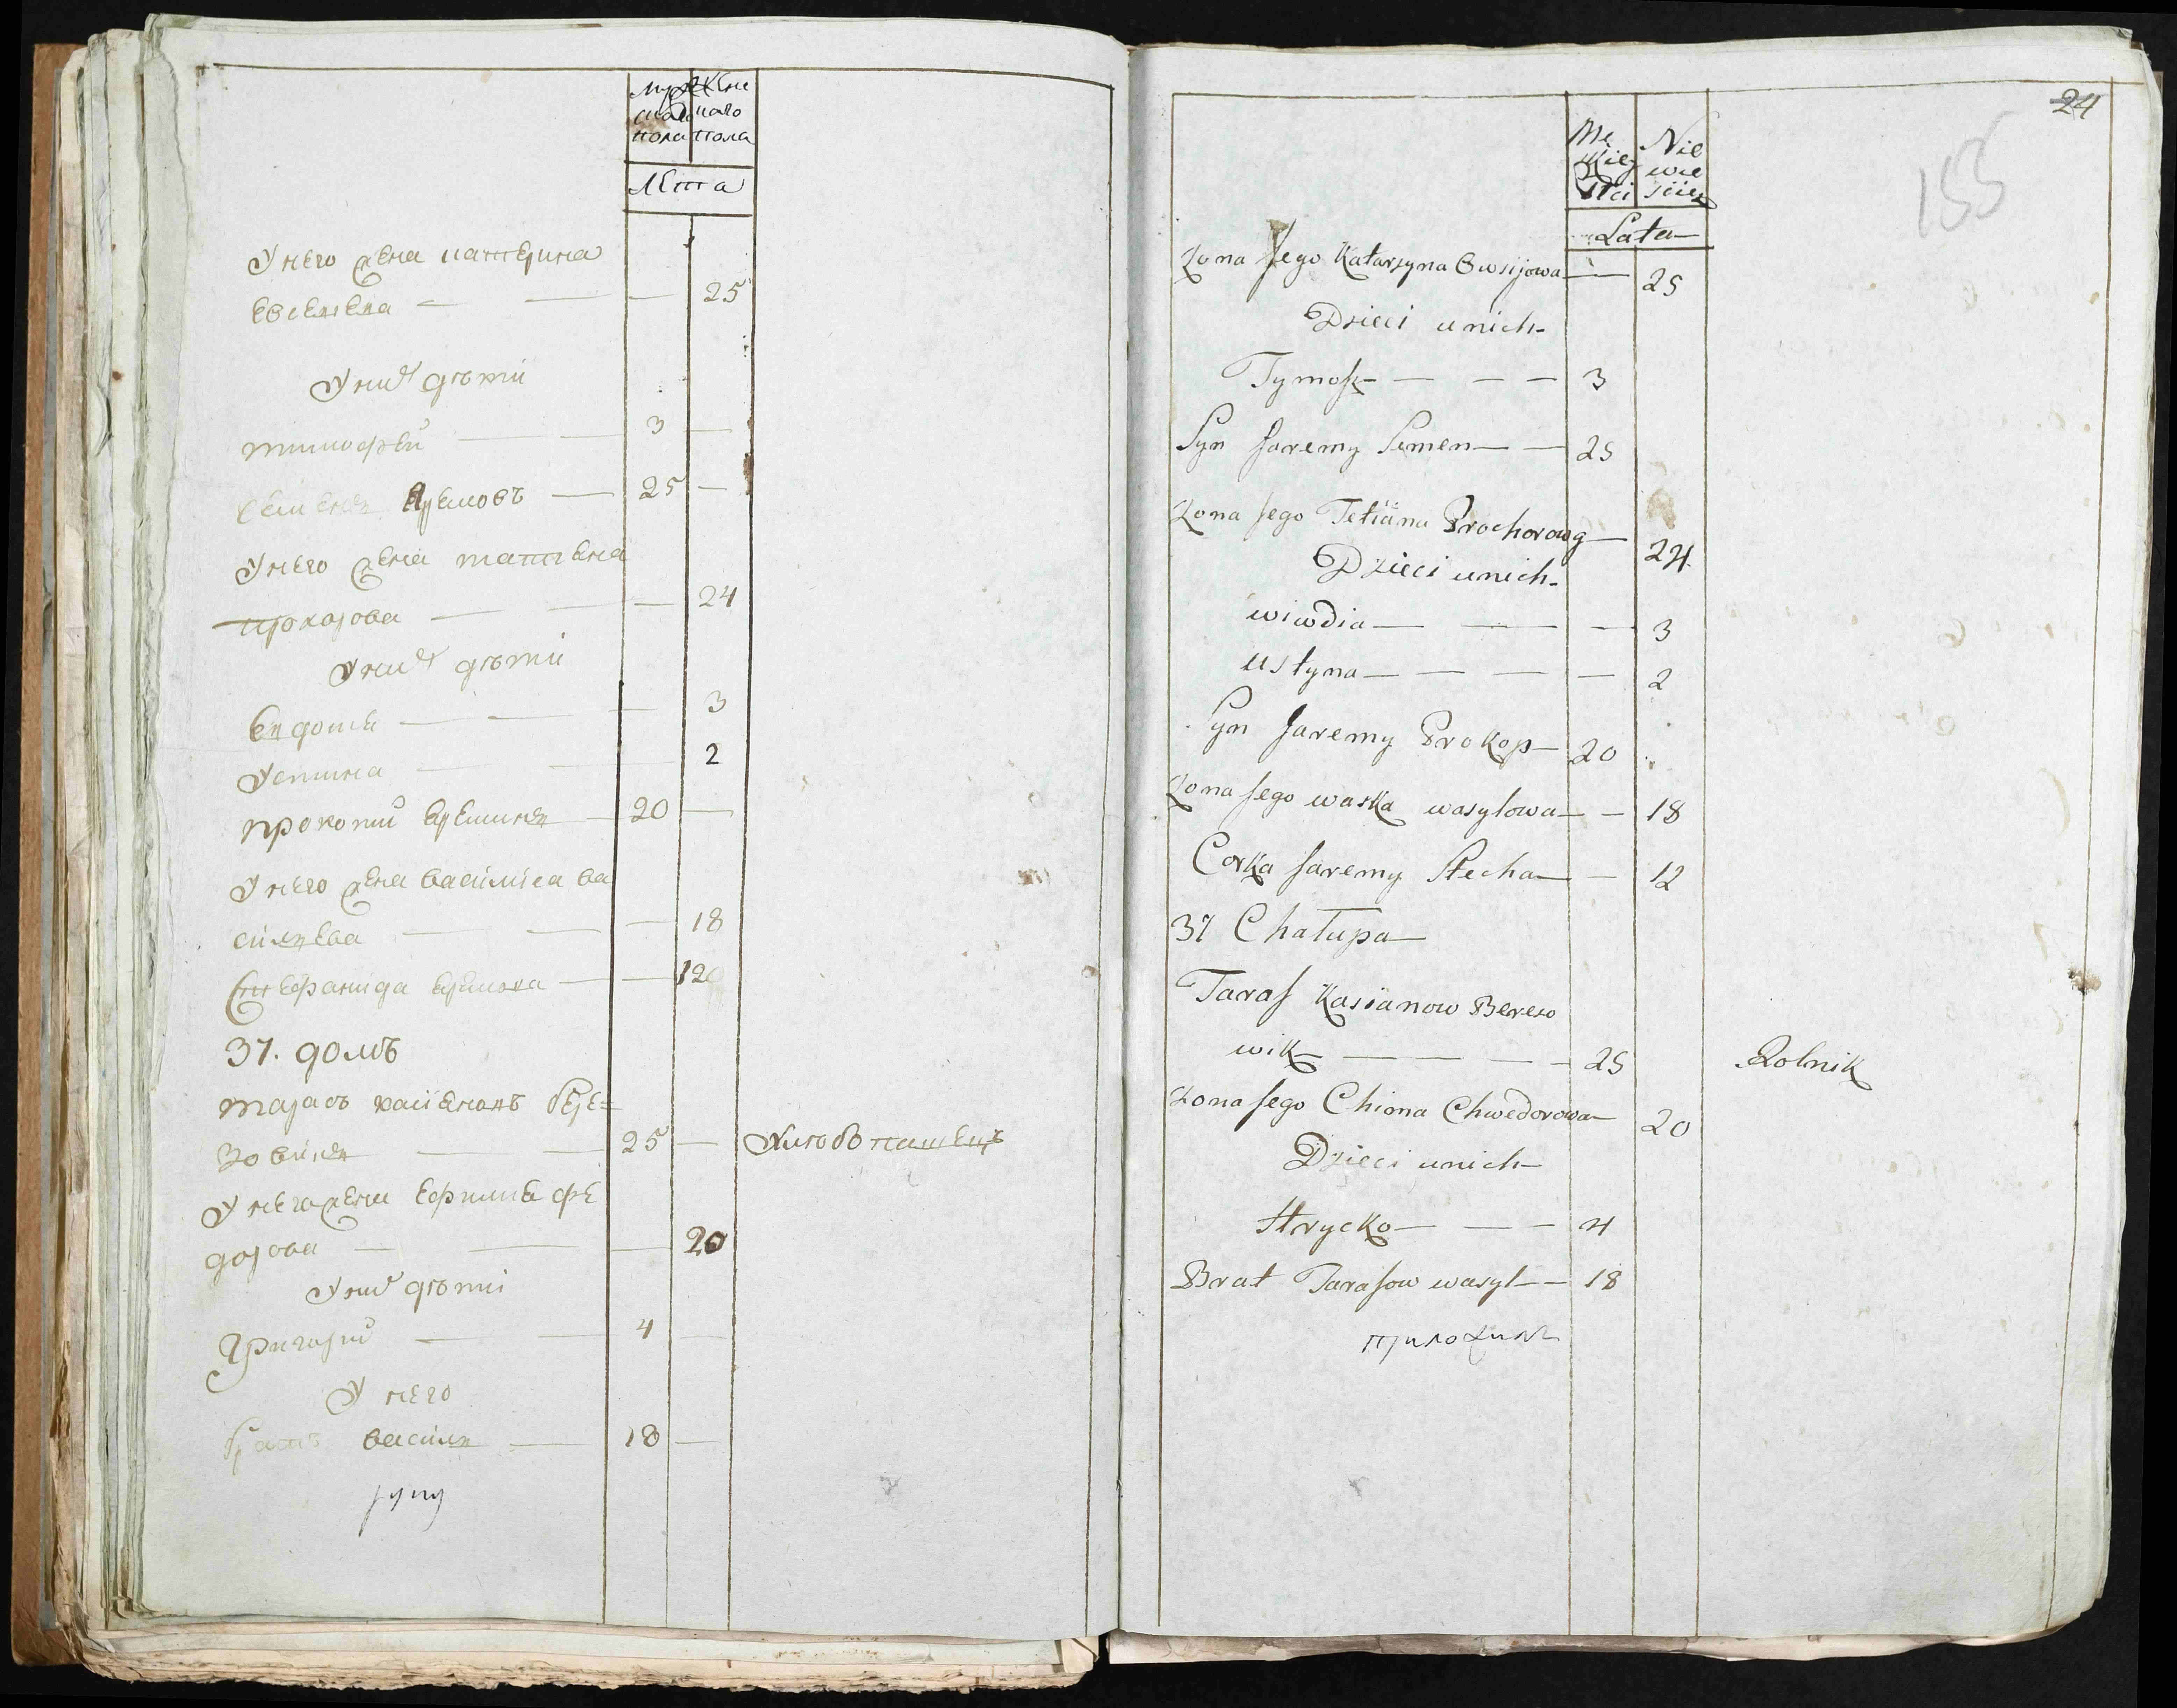 Муже
ска
пола
Жен
скаго
пола
Лета
У него жена катерина
евсеева — — — 25
У них дѣти
тимофей — — 3 —
семенъ Яремовъ — 25 —
У него жена татиена
прохорова — — — 24
У них дѣти
Евдошя — — — 3
Устина — — 2
прокопий — 20 —
У него жена василіса ва
силиева — — — 18
Стефанида — — 12
37. домъ
тарасъ касіеновъ бере=
зовикъ — — 25 — Хлѣбопашецъ
У него жена ефимия фе
дорова — — — 20
У них дѣти
Григорий — — 4 —
У него
братъ василь — 18 —
руку
24
155
Mę
skiey
Płci
Nie
wie
sciey
Lata
Zona Jego Katarzyna Owsijowa — 25
Dzieci unich
Tymosz — — — 3
Syn Jaremy Semen — — 25
Zona Jego Tetiana Prochorowa — 24
Dzieci unich
wiwdia — — — 3
ustyna — — — — 2
Syn Jaremy Prokop — 20
Zona Jego waska wasylowa — — 18
Corka Jaremy Stecha — — 12
37 Chałupa
Taras Kasianow Berezo
wik — — — — 25 Rolnik
Zona Jego Chima Chwedorowa — 20
Dzieci unich
Hrycko — — — 4
Brat Tarasow wasyl — — 18
приложилъ